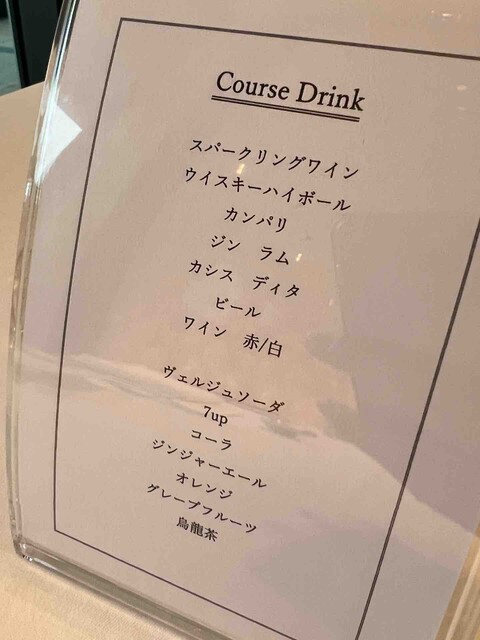 Course Drink
スパークリングワイン
ウイスキーハイボール
カンパリ
ジン　ラム
カシス　ディタ
ビール
ワイン　赤/白
ヴェルジュソーダ
7up
コーラ
ジンジャーエール
オレンジ
グレープフルーツ
烏龍茶